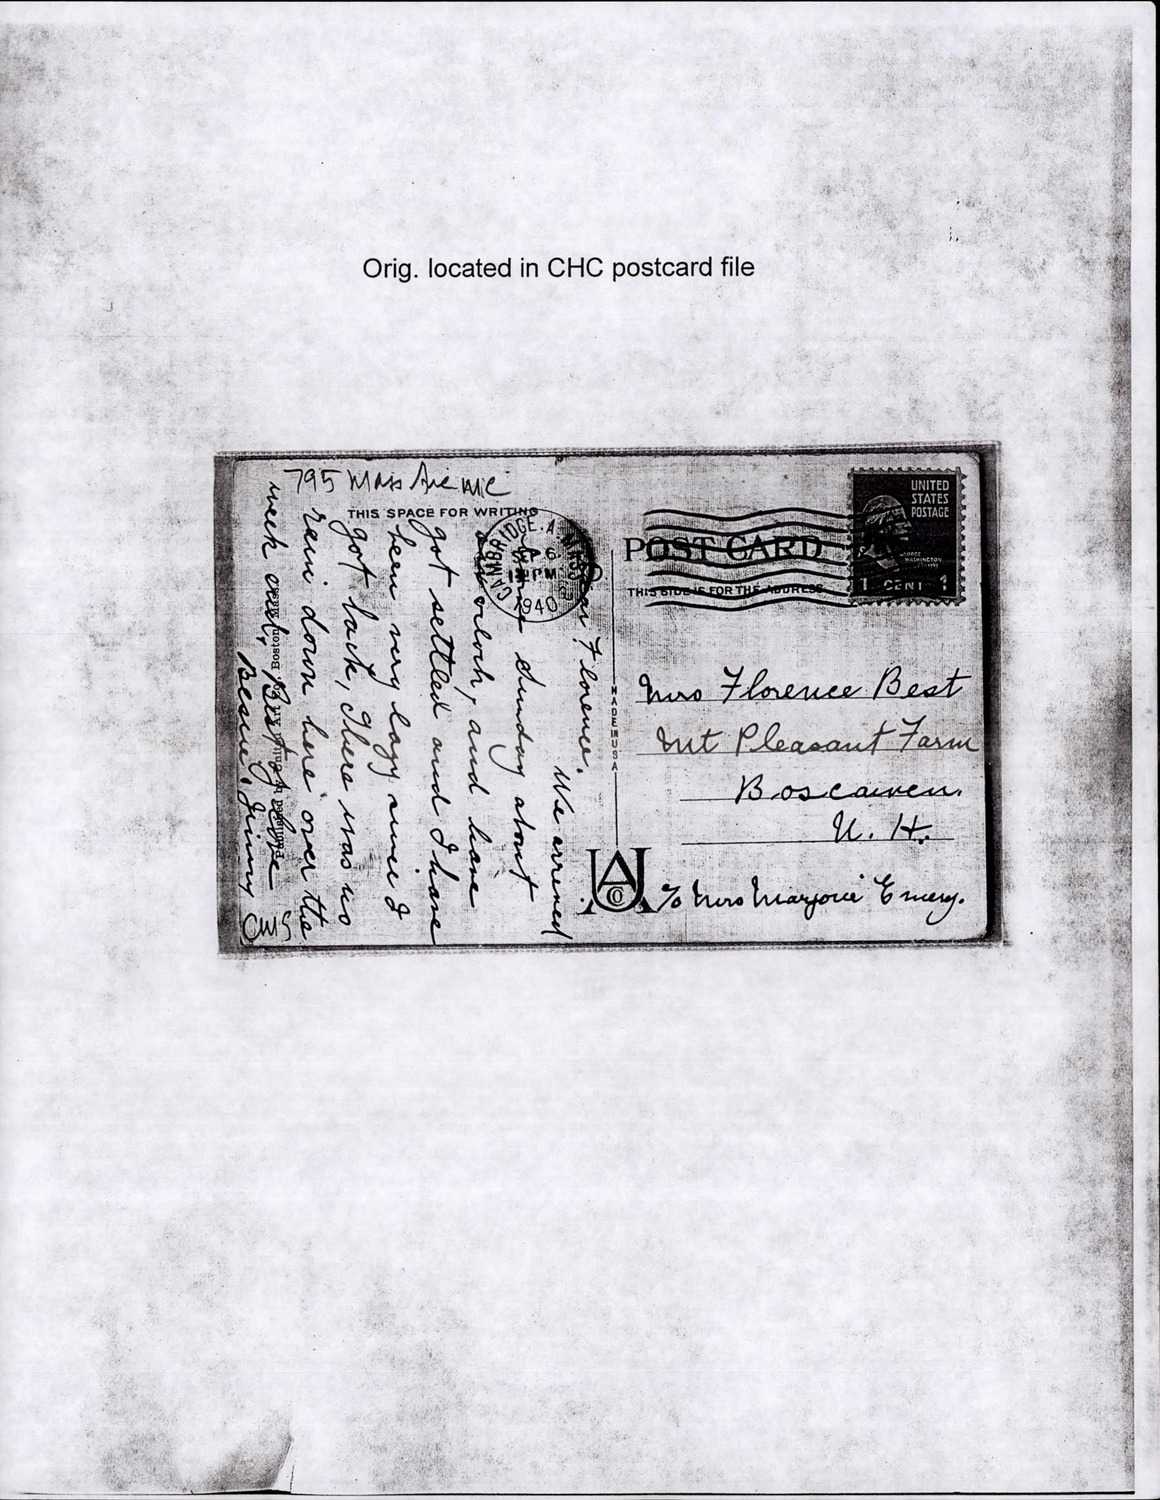 Orig. located in CHC postcard file
795 Mass Ave
THIS SPACE FOR WRITING
Florence.
We arrived
home Sunday about
oclock, and have
got settled and I have
been very lazy since I
got back, There was no
rain down here over the
week end, Best of love
Bessie & Jimmy
CAMBRIDGE. A
MASS
6
PM
1940
POST CARD
THIS SIDE IS FOR THE ADDRESS
UNITED
STATES
POSTAGE
GEORGE
WASHINGTON
1 CENT 1
MADE IN USA
Mrs Florence Best
Mt Pleasant Farm
Boscawen.
N. H.
% Mrs Marjorie Emery.